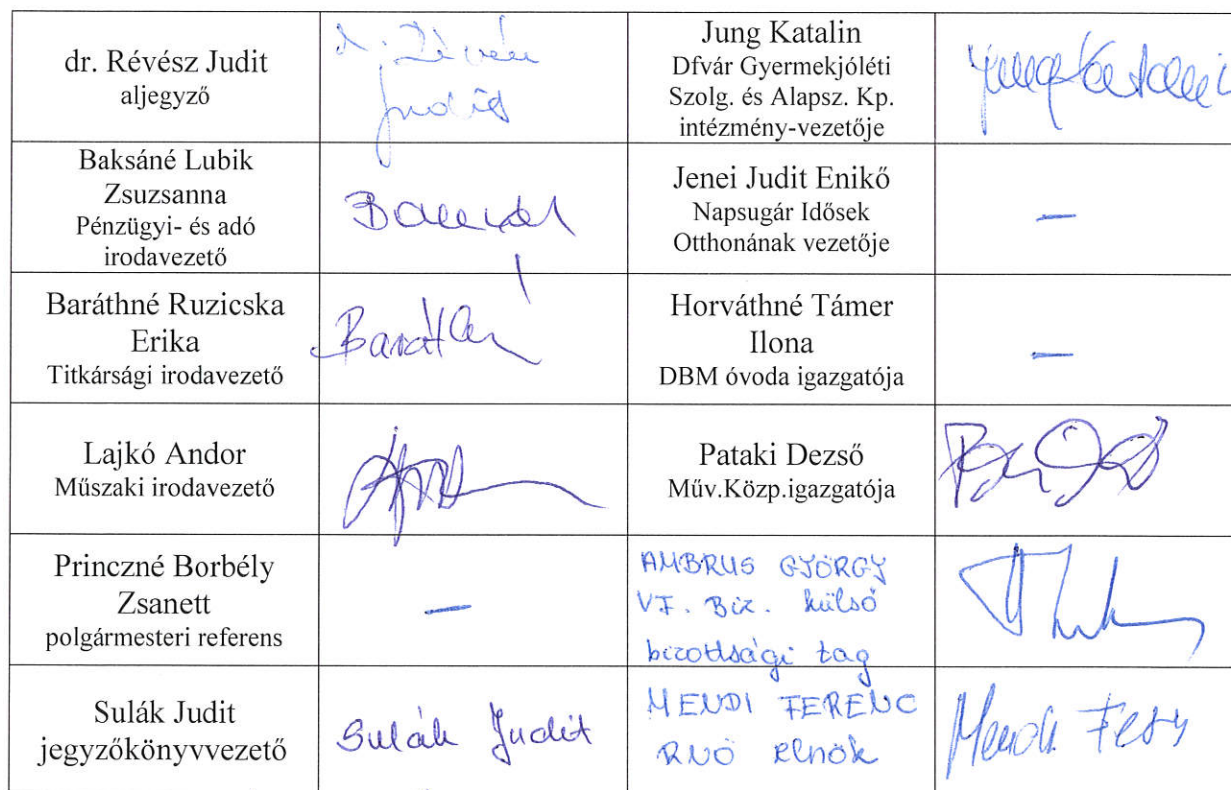 dr. Révész Judit
aljegyző
dr. Révész
Judit
Jung Katalin
Dfvár Gyermekjóléti
Szolg. és Alapsz. Kp.
intézmény-vezetője
Jung Katalin
Baksáné Lubik
Zsuzsanna
Pénzügyi- és adó
irodavezető
Jenei Judit Enikő
Napsugár Idősek
Otthonának vezetője
—
Baráthné Ruzicska
Erika
Titkársági irodavezető
Baráthné
Horváthné Támer
Ilona
DBM óvoda igazgatója
—
Lajkó Andor
Műszaki irodavezető
Pataki Dezső
Műv.Közp.igazgatója
Princzné Borbély
Zsanett
polgármesteri referens
—
AMBRUS GYÖRGY
VF. Biz. külső
bizottsági tag
Sulák Judit
jegyzőkönyvvezető
Sulák Judit
MENDI FERENC
RNÖ Elnök
Mendi